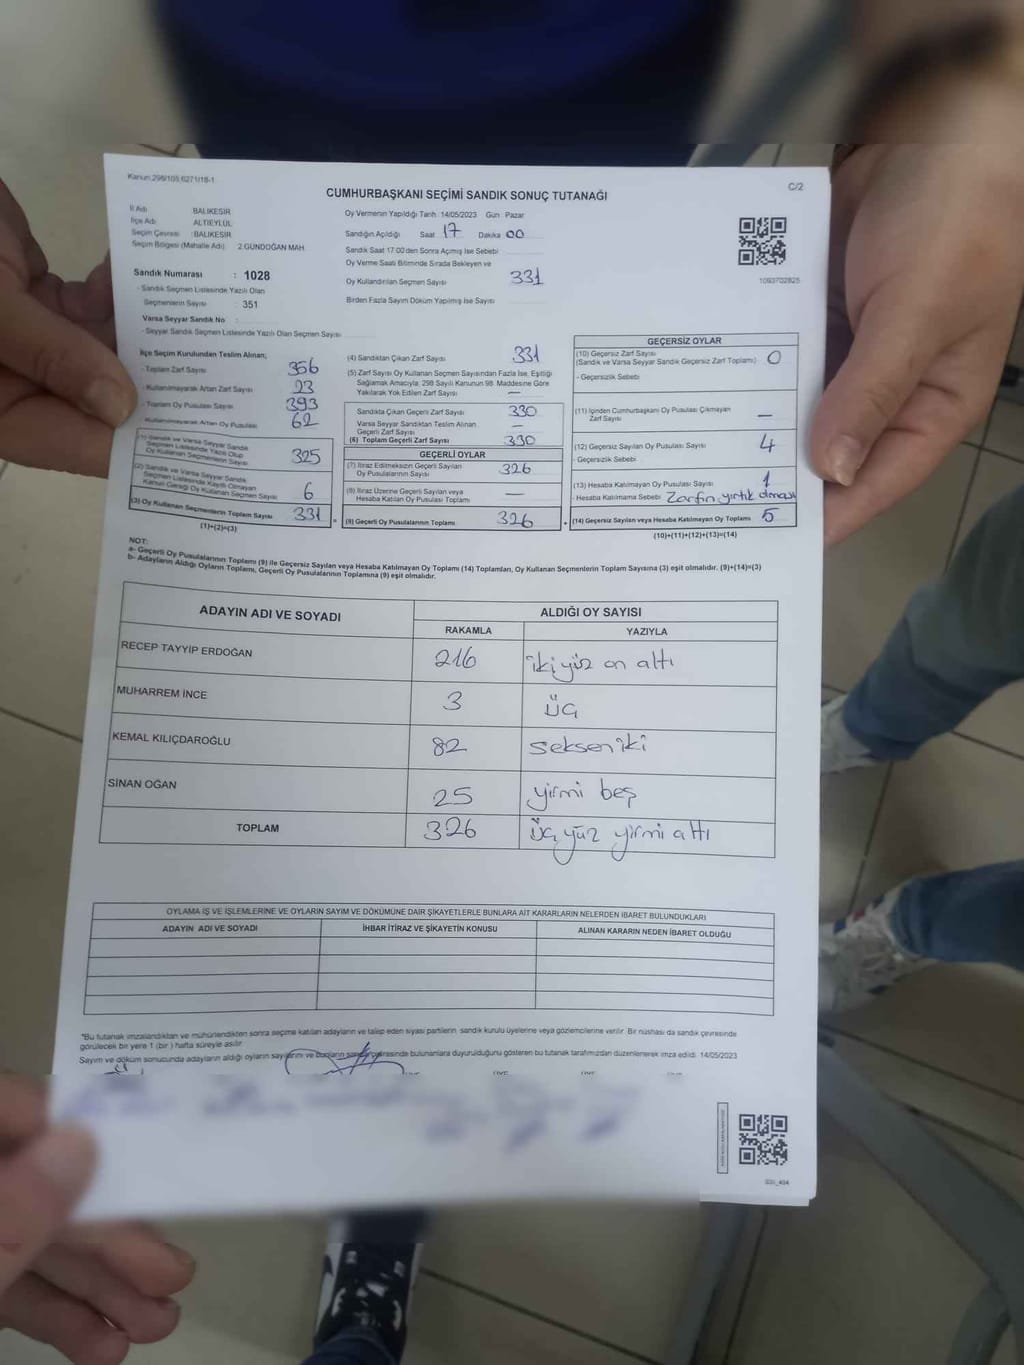 Kanun:298/105,6271/18-1
C/2
CUMHURBAŞKANI SEÇİMİ SANDIK SONUÇ TUTANAĞI
İl Adı BALIKESİR
İlçe Adı ALTIEYLÜL
Seçim Çevresi :BALIKESİR
Seçim Bölgesi (Mahalle Adı) 2.GÜNDOĞAN MAH.
Sandık Numarası : 1028
- Sandık Seçmen Listesinde Yazılı Olan
Seçmenlerin Sayısı : 351
Varsa Seyyar Sandık No
- Seyyar Sandık Seçmen Listesinde Yazılı Olan Seçmen Sayısı
Oy Vermenin Yapıldığı Tarih :14/05/2023 Gün : Pazar
Sandığın Açıldığı Saat 17 Dakika 00
Sandık Saat 17:00'den Sonra Açımış İse Sebebi
Oy Verme Saati Bitiminde Sırada Bekleyen ve
Oy Kullandırılan Seçmen Sayısı 331
Birden Fazla Sayım Döküm Yapılmış İse Sayısı
1093702825
İlçe Seçim Kurulundan Teslim Alınan;
- Toplam Zarf Sayısı 356
- Kullanılmayarak Artan Zarf Sayısı 23
- Toplam Oy Pusulası Sayısı 393
- Kullanılmayarak Artan Oy Pusulası 62
(1) Sandık ve Varsa Seyyar Sandık
Seçmen Listesinde Yazılı Olup
Oy Kullanan Seçmenlerin Sayısı 325
(2) Sandık ve Varsa Seyyar Sandık
Seçmen Listesinde Kayıtlı Olmayan
Kanun Gereği Oy Kullanan Seçmen Sayısı 6
(3) Oy Kullanan Seçmenlerin Toplam Sayısı 331
(1)+(2)=(3)
(4) Sandıktan Çıkan Zarf Sayısı 331
(5) Zarf Sayısı Oy Kullanan Seçmen Sayısından Fazla İse, Eşitliği
Sağlamak Amacıyla, 298 Sayılı Kanunun 98. Maddesine Göre
Yakılarak Yok Edilen Zarf Sayısı —
Sandıkta Çıkan Geçerli Zarf Sayısı 330
Varsa Seyyar Sandıktan Teslim Alınan
Geçerli Zarf Sayısı —
(6) Toplam Geçerli Zarf Sayısı 330
GEÇERLİ OYLAR
(7) İtiraz Edilmeksizin Geçerli Sayılan
Oy Pusulalarının Sayısı 326
(8) İtiraz Üzerine Geçerli Sayılan veya
Hesaba Katılan Oy Pusulası Toplamı —
(9) Geçerli Oy Pusulalarının Toplamı 326
GEÇERSİZ OYLAR
(10) Geçersiz Zarf Sayısı
(Sandık ve Varsa Seyyar Sandık Geçersiz Zarf Toplamı) 0
- Geçersizlik Sebebi
(11) İçinden Cumhurbaşkanı Oy Pusulası Çıkmayan
Zarf Sayısı —
(12) Geçersiz Sayılan Oy Pusulası Sayısı 4
- Geçersizlik Sebebi
(13) Hesaba Katılmayan Oy Pusulası Sayısı 1
- Hesaba Katılmama Sebebi Zarfın yırtık olması
(14) Geçersiz Sayılan veya Hesaba Katılmayan Oy Toplamı 5
(10)+(11)+(12)+(13)=(14)
NOT:
a- Geçerli Oy Pusulalarının Toplamı (9) ile Geçersiz Sayılan veya Hesaba Katılmayan Oy Toplamı (14) Toplamları, Oy Kullanan Seçmenlerin Toplam Sayısına (3) eşit olmalıdır. (9)+(14)=(3)
b- Adayların Aldığı Oyların Toplamı, Geçerli Oy Pusulalarının Toplamına (9) eşit olmalıdır.
ADAYIN ADI VE SOYADI ALDIĞI OY SAYISI
RAKAMLA YAZIYLA
RECEP TAYYİP ERDOĞAN 216 iki yüz on altı
MUHARREM İNCE 3 üç
KEMAL KILIÇDAROĞLU 82 seksen iki
SİNAN OĞAN 25 yirmi beş
TOPLAM 326 üç yüz yirmi altı
OYLAMA İŞ VE İŞLEMLERİNE VE OYLARIN SAYIM VE DÖKÜMÜNE DAİR ŞİKAYETLERLE BUNLARA AİT KARARLARIN NELERDEN İBARET BULUNDUKLARI
ADAYIN ADI VE SOYADI İHBAR İTİRAZ VE ŞİKAYETİN KONUSU ALINAN KARARIN NEDEN İBARET OLDUĞU
*Bu tutanak imzalandıktan ve mühürlendikten sonra seçime katılan adayların ve talep eden siyasi partilerin sandık kurulu üyelerine veya gözlemcilerine verilir. Bir nüshası da sandık çevresinde
görülecek bir yere 1 (bir ) hafta süreyle asılır.
Sayım ve döküm sonucunda adayların aldığı oyların sayılarını ve bunların sandık çevresinde bulunanlara duyurulduğunu gösteren bu tutanak tarafımızdan düzenlenerek imza edildi. 14/05/2023